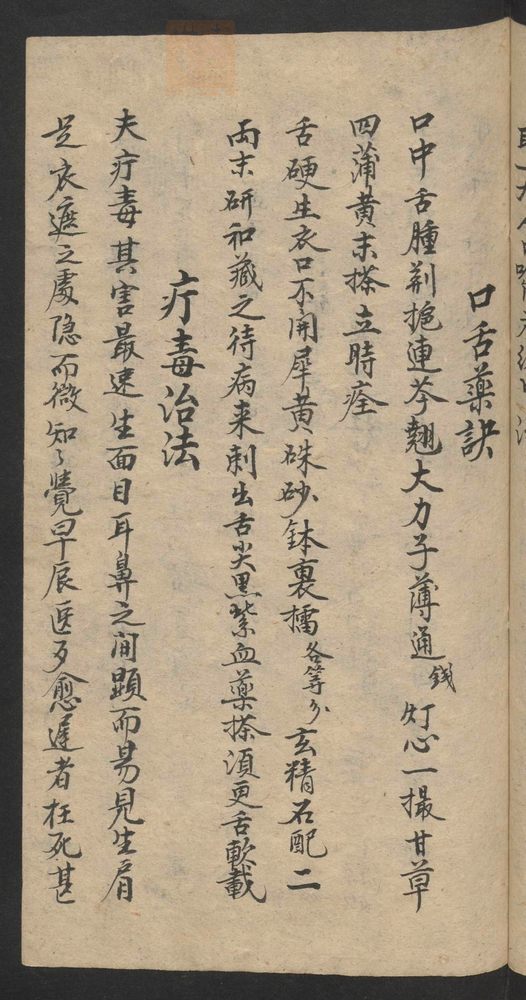 口舌藥訣
口中舌腫荆梔連芩翹大力子薄通錢灯心一撮甘草
四蒲黄末搽立時痊
舌硬生衣口不開犀黄硃砂鉢裏擂各等分玄精石配二
両末研和藏之待病来刺出舌尖黒紫血藥搽須更舌軟載
疔毒治法
夫疔毒其害最速生面目耳鼻之间顕而易見生肩
足衣遮之處隐而微知々覺早辰医多愈遅者枉死甚